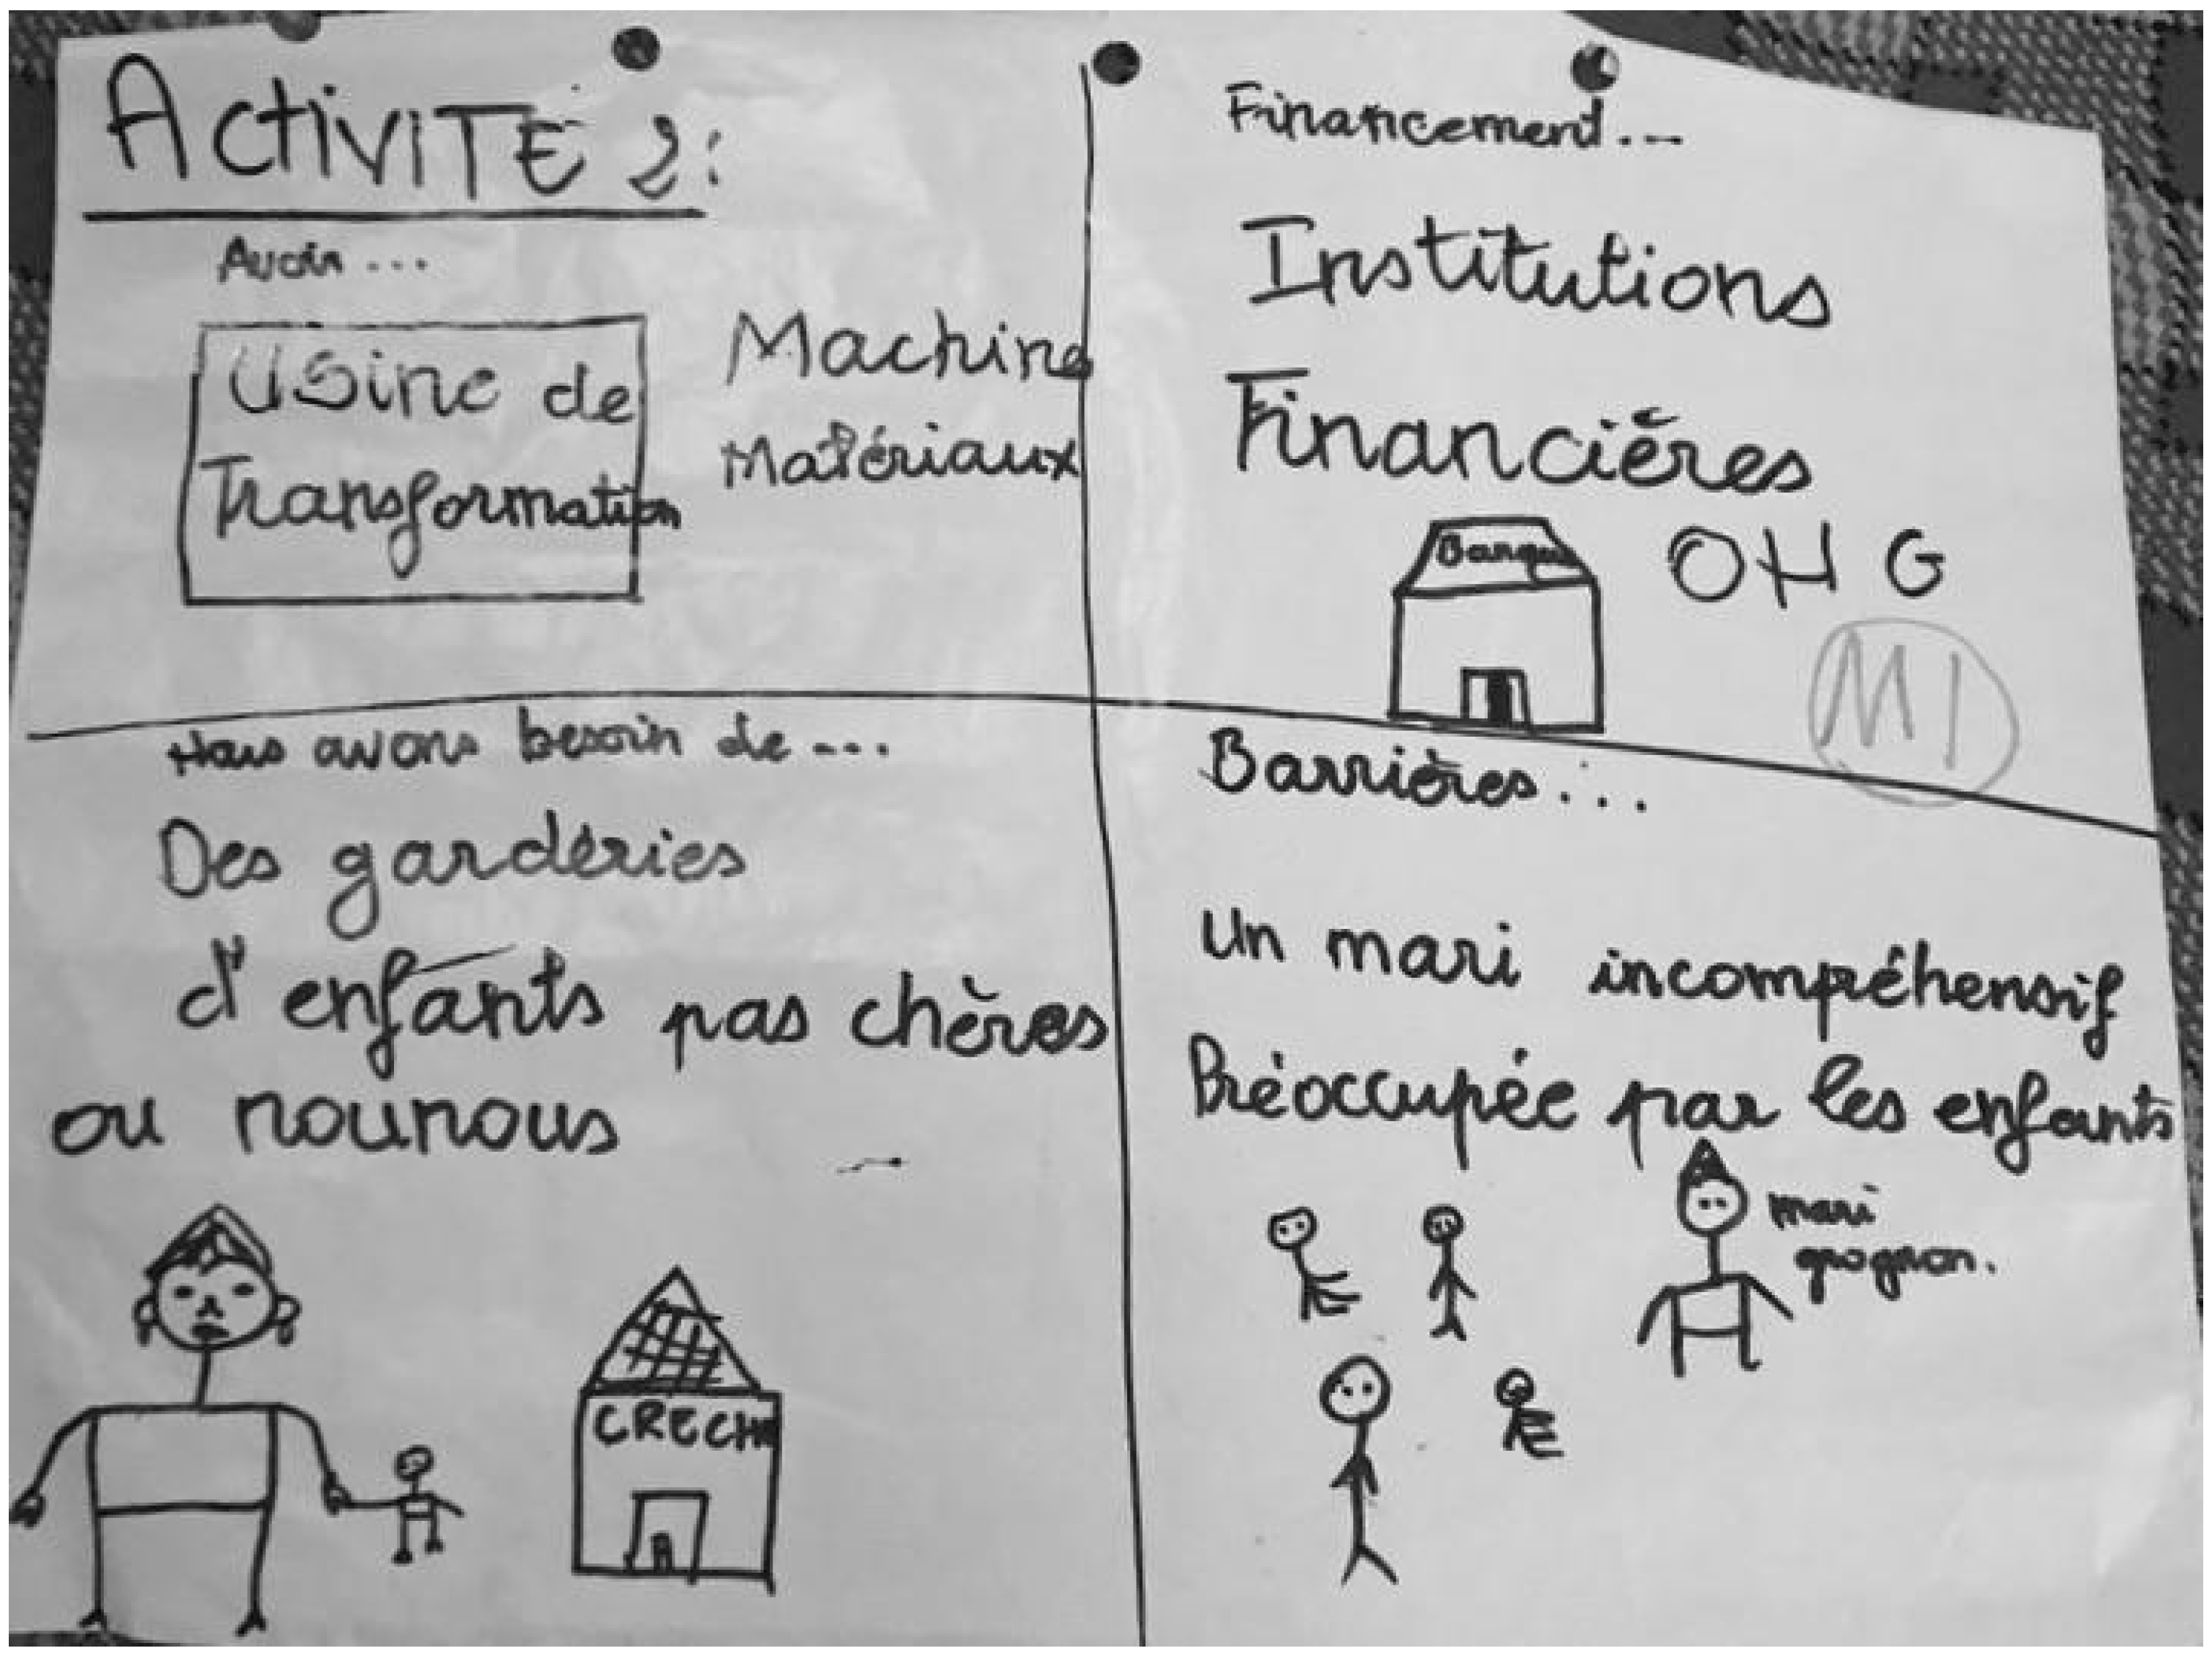 ACTIVITE 2:
Avoir ...
Usine de
Transformation
Machine
Matériaux
Financement...
Institutions
Financières
Banque
OHG
M1
Nous avons besoin de ...
Des garderies
d'enfants pas chères
ou nounous
CRECHE
Barrières...
Un mari incompréhensif
Préoccupée par les enfants
mari
grognon.